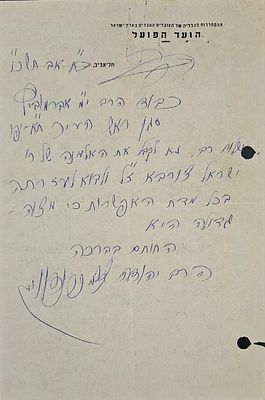 ההסתדרות הכללית של העובדים העברים בארץ-ישראל
הועד הפועל
תל-אביב, כ"א אב תשכ"ו
כבוד הרב י"מ אברמוביץ
סגן ראש העיר ת"א-יפו
שלום רב, נא לקבל את האלמנה של ר'
ישראל צורבא ז"ל ולבוא לעזרתה
בכל מדת האפשרות כי מצוה
גדולה היא
החותם בברכה
הרב יהודה